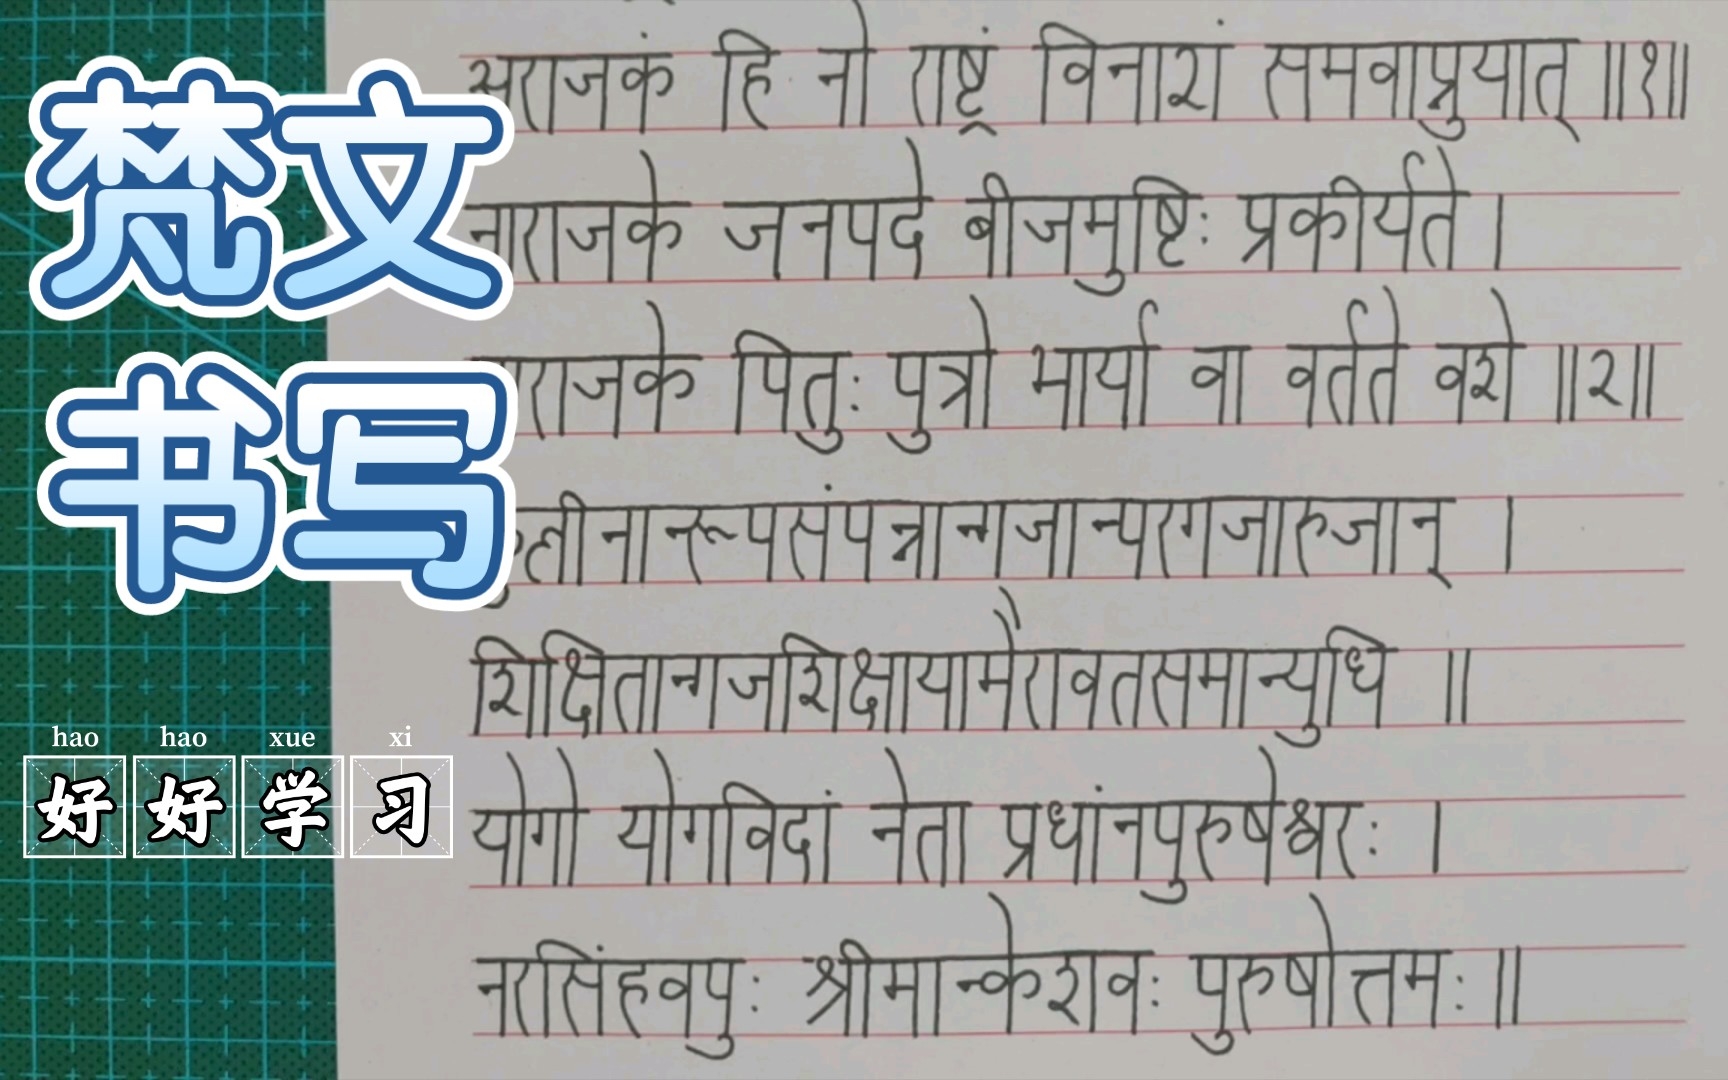 梵文
书写
hao hao xue xi
好好学习
अराजकं हि नो राष्ट्रं विनाशं समवाप्नुयात् ॥१॥
नाराजके जनपदे बीजमुष्टिः प्रकीर्यते ।
राजके पितुः पुत्रो भार्या वा वर्तते वशे ॥२॥
कुलीनान्रूपसंपन्नान्गजान्परगजारुजान् ।
शिक्षितान्गजशिक्षायामैरावतसमान्युधि ॥
योगो योगविदां नेता प्रधांनपुरुषेश्वरः ।
नरसिंहवपुः श्रीमान्केशवः पुरुषोत्तमः ॥